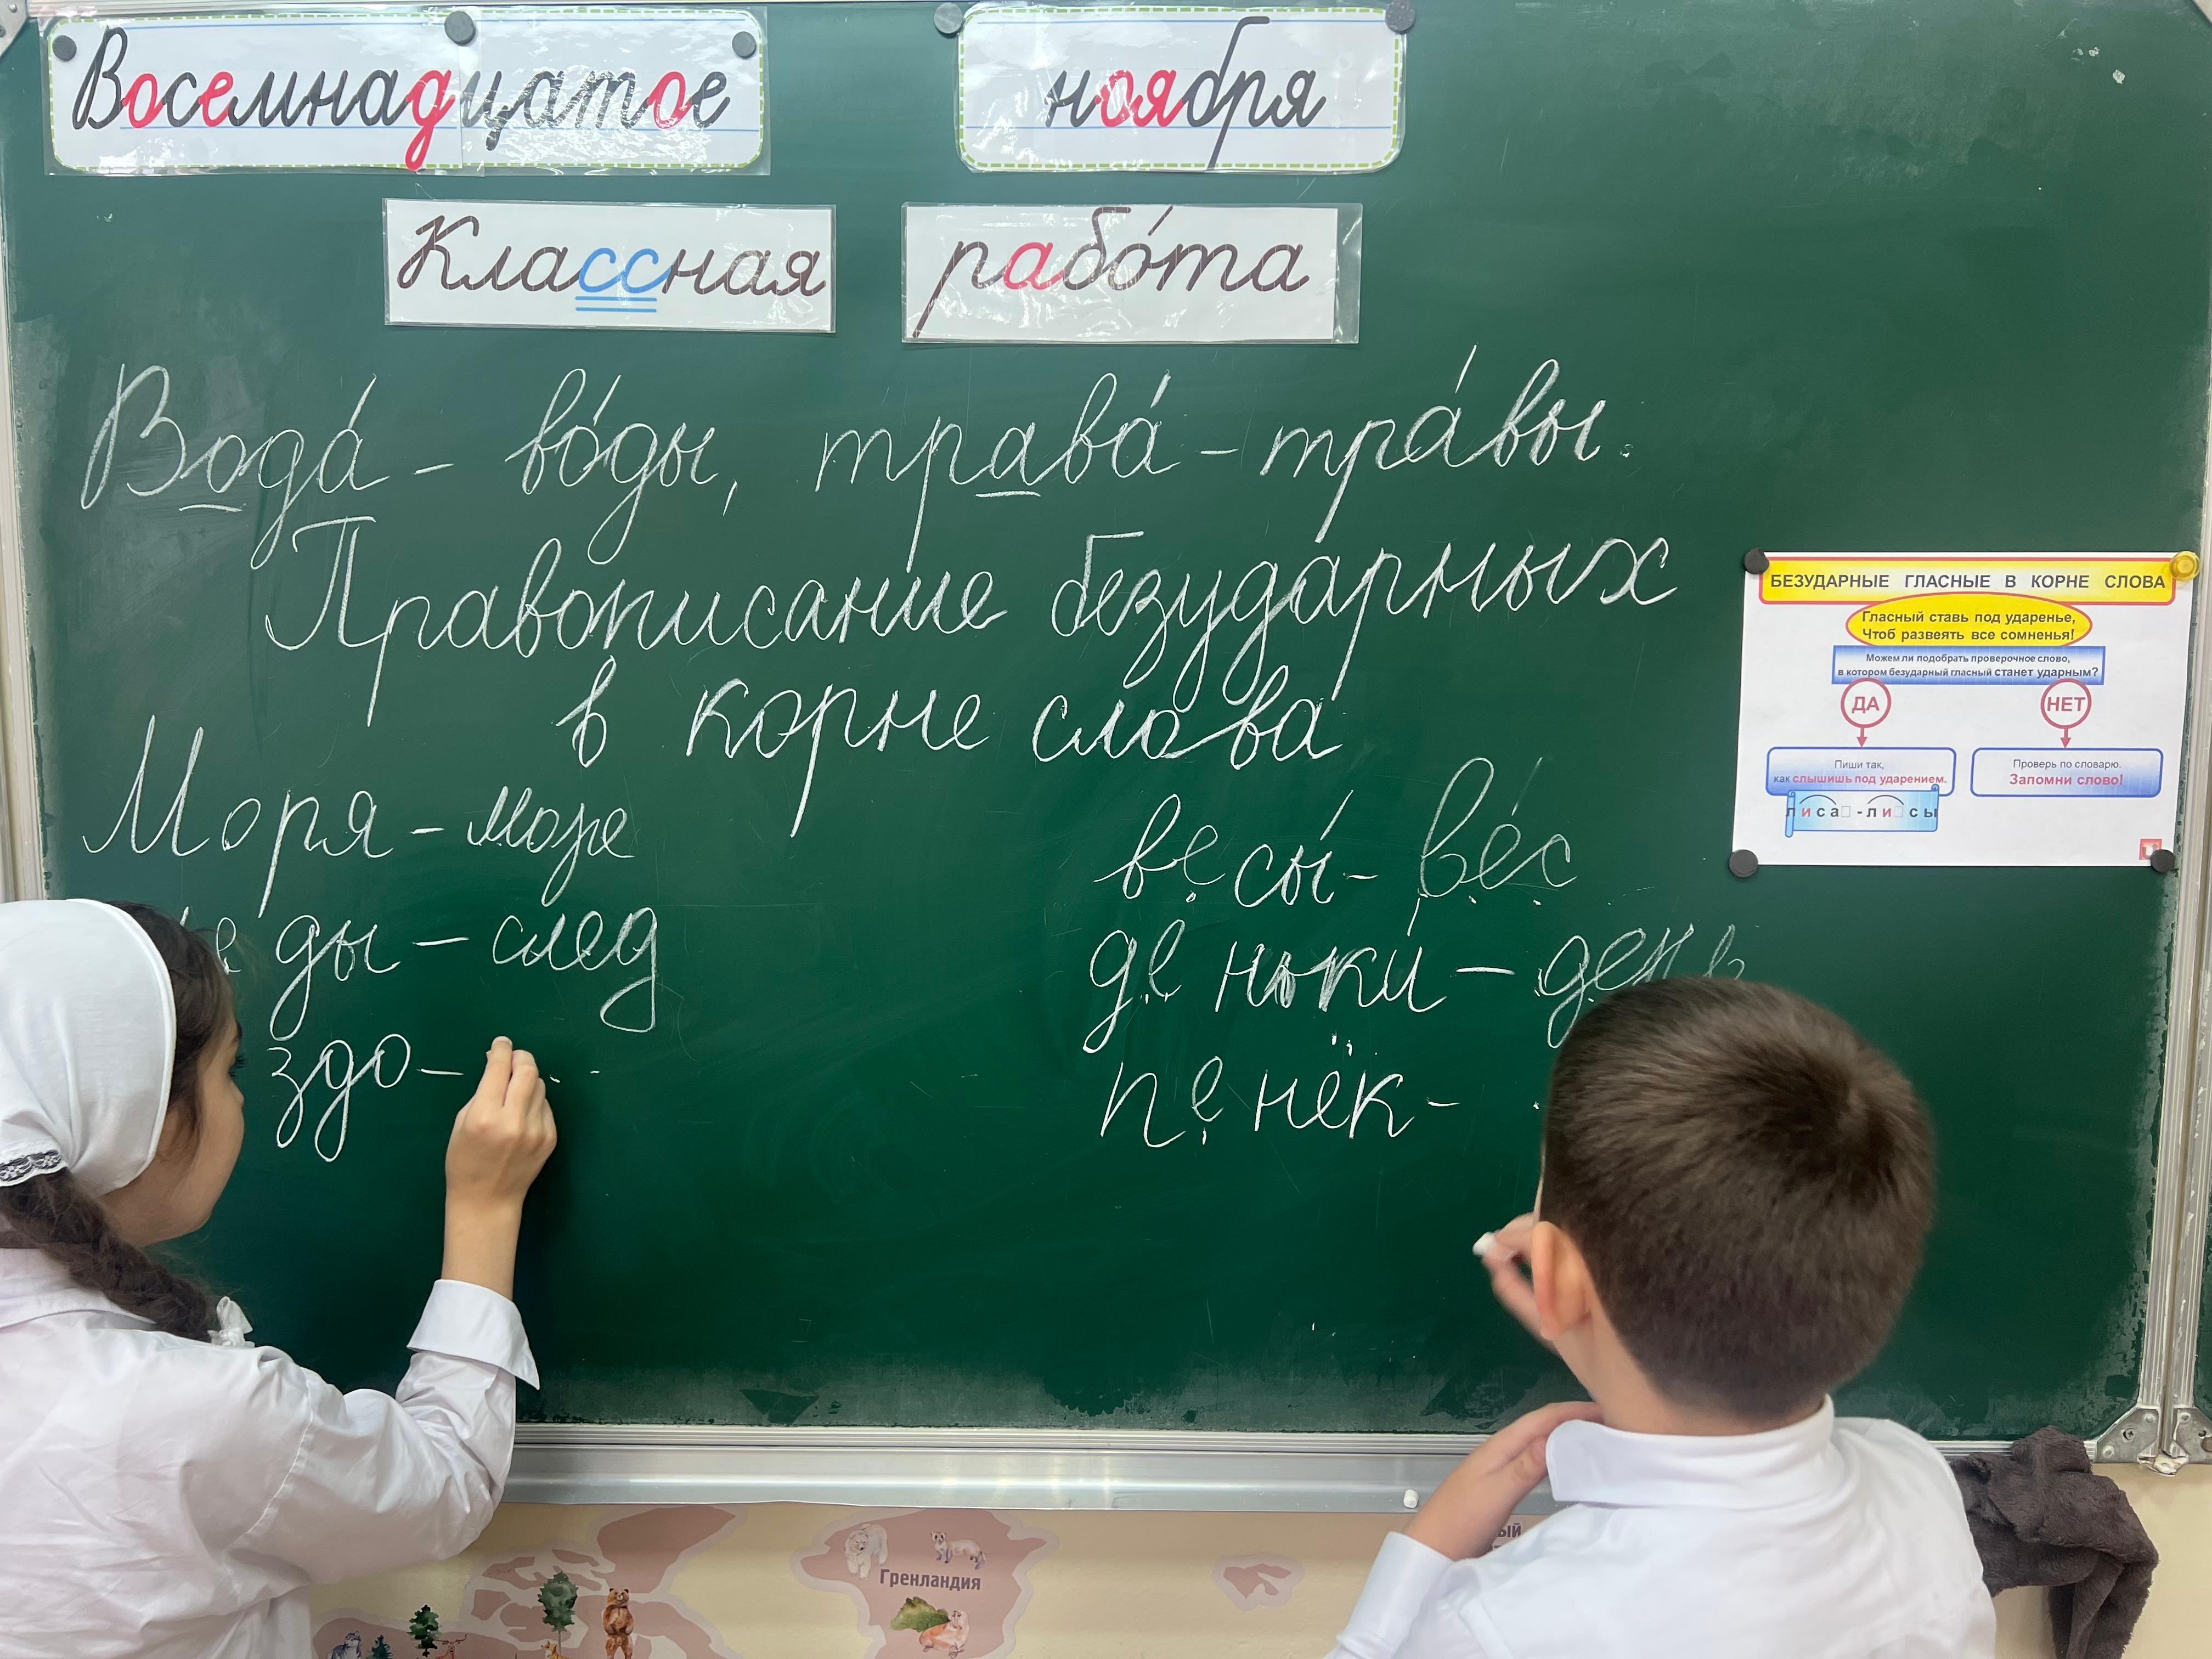 Восемнадцатое ноября
Классная работа
Вода́ - во́ды, трава́ - тра́вы.
Правописание безударных
в корне слова
Моря - море
ды - след
здо -
весы́ - ве́с
де ньки́ - день
пе нёк -
БЕЗУДАРНЫЕ ГЛАСНЫЕ В КОРНЕ СЛОВА
Гласный ставь под ударенье,
Чтоб развеять все сомненья!
Можем ли подобрать проверочное слово,
в котором безударный гласный станет ударным?
ДА
НЕТ
Пиши так,
как слышишь под ударением.
Проверь по словарю.
Запомни слово!
лиса - ли сы
Гренландия